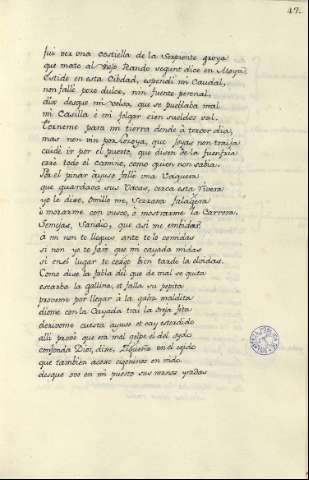 47.
fui ver una costiella de la Serpiente groya
que mato al Viejo Rando segunt dice en Moya.
Estide en esta Cibdad, espendi mi Caudal,
non fallé pozo dulce, nin fuente perenal.
dixe desque vi volsa que se puellaba mal
mi Casilla é mi folgar cien sueldos val.
Torneme para mi tierra dende à tercer dia,
mas non vin por Lozoya, que Joyas non traija
cuidé ir por el puerto, que disen de la fuenfria
erré todo el Camino, como quien non sabia.
Por el pinar ayuso fallé una Vaquera
que guardaba sus Vacas, cerca esta rivera
yo le dixe, omillo me, Serrana falaguera
ò morarme con vusco, ò mostrarme la Carrera.
Semejas, Sandio, que asi me embidas
à mi non te llegues ante te lo comidas
si non yo te faré que mi cayada midas
si en el lugar te cojo bien tarde la olvidas.
Como dise la fabla del que de mal se quita
escarba la gallina, et falla su pepita
proveme por llegar à la gaha maldita
diome con la Cayada tras la oreja fita
derivome cuesta ayuso et cay estordido
alli prové que era mal golpe el del oydo
confonda Dios, dixe, Zigueña en el exido
que tambien acoxe cigoninos en nido
desque ovo en mi puesto sus manos yradas